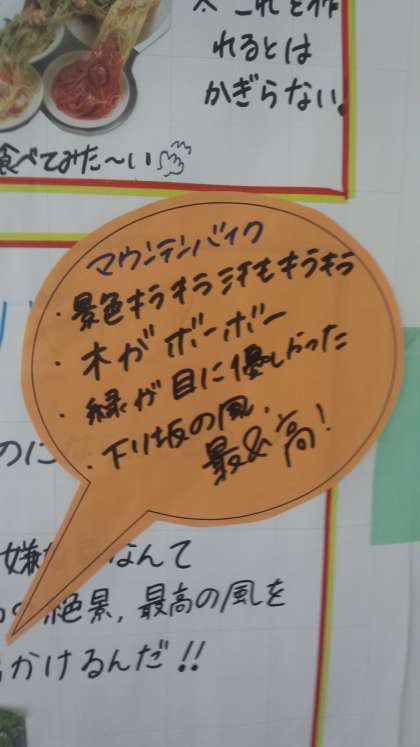 ※これを作
れるとは
かぎらない。
食べてみた〜い
マウンテンバイク
・景色キラキラ汗もキラキラ
・木がボーボー
・緑が目に優しかった
・下り坂の風、
最&高!
のにな
嫌な なんて
絶景、最高の風を
かけるんだ!!